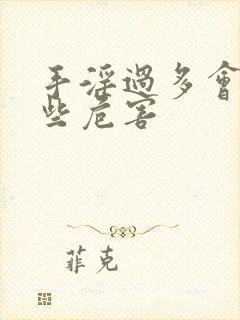 手淫過多會
些危害
菲克